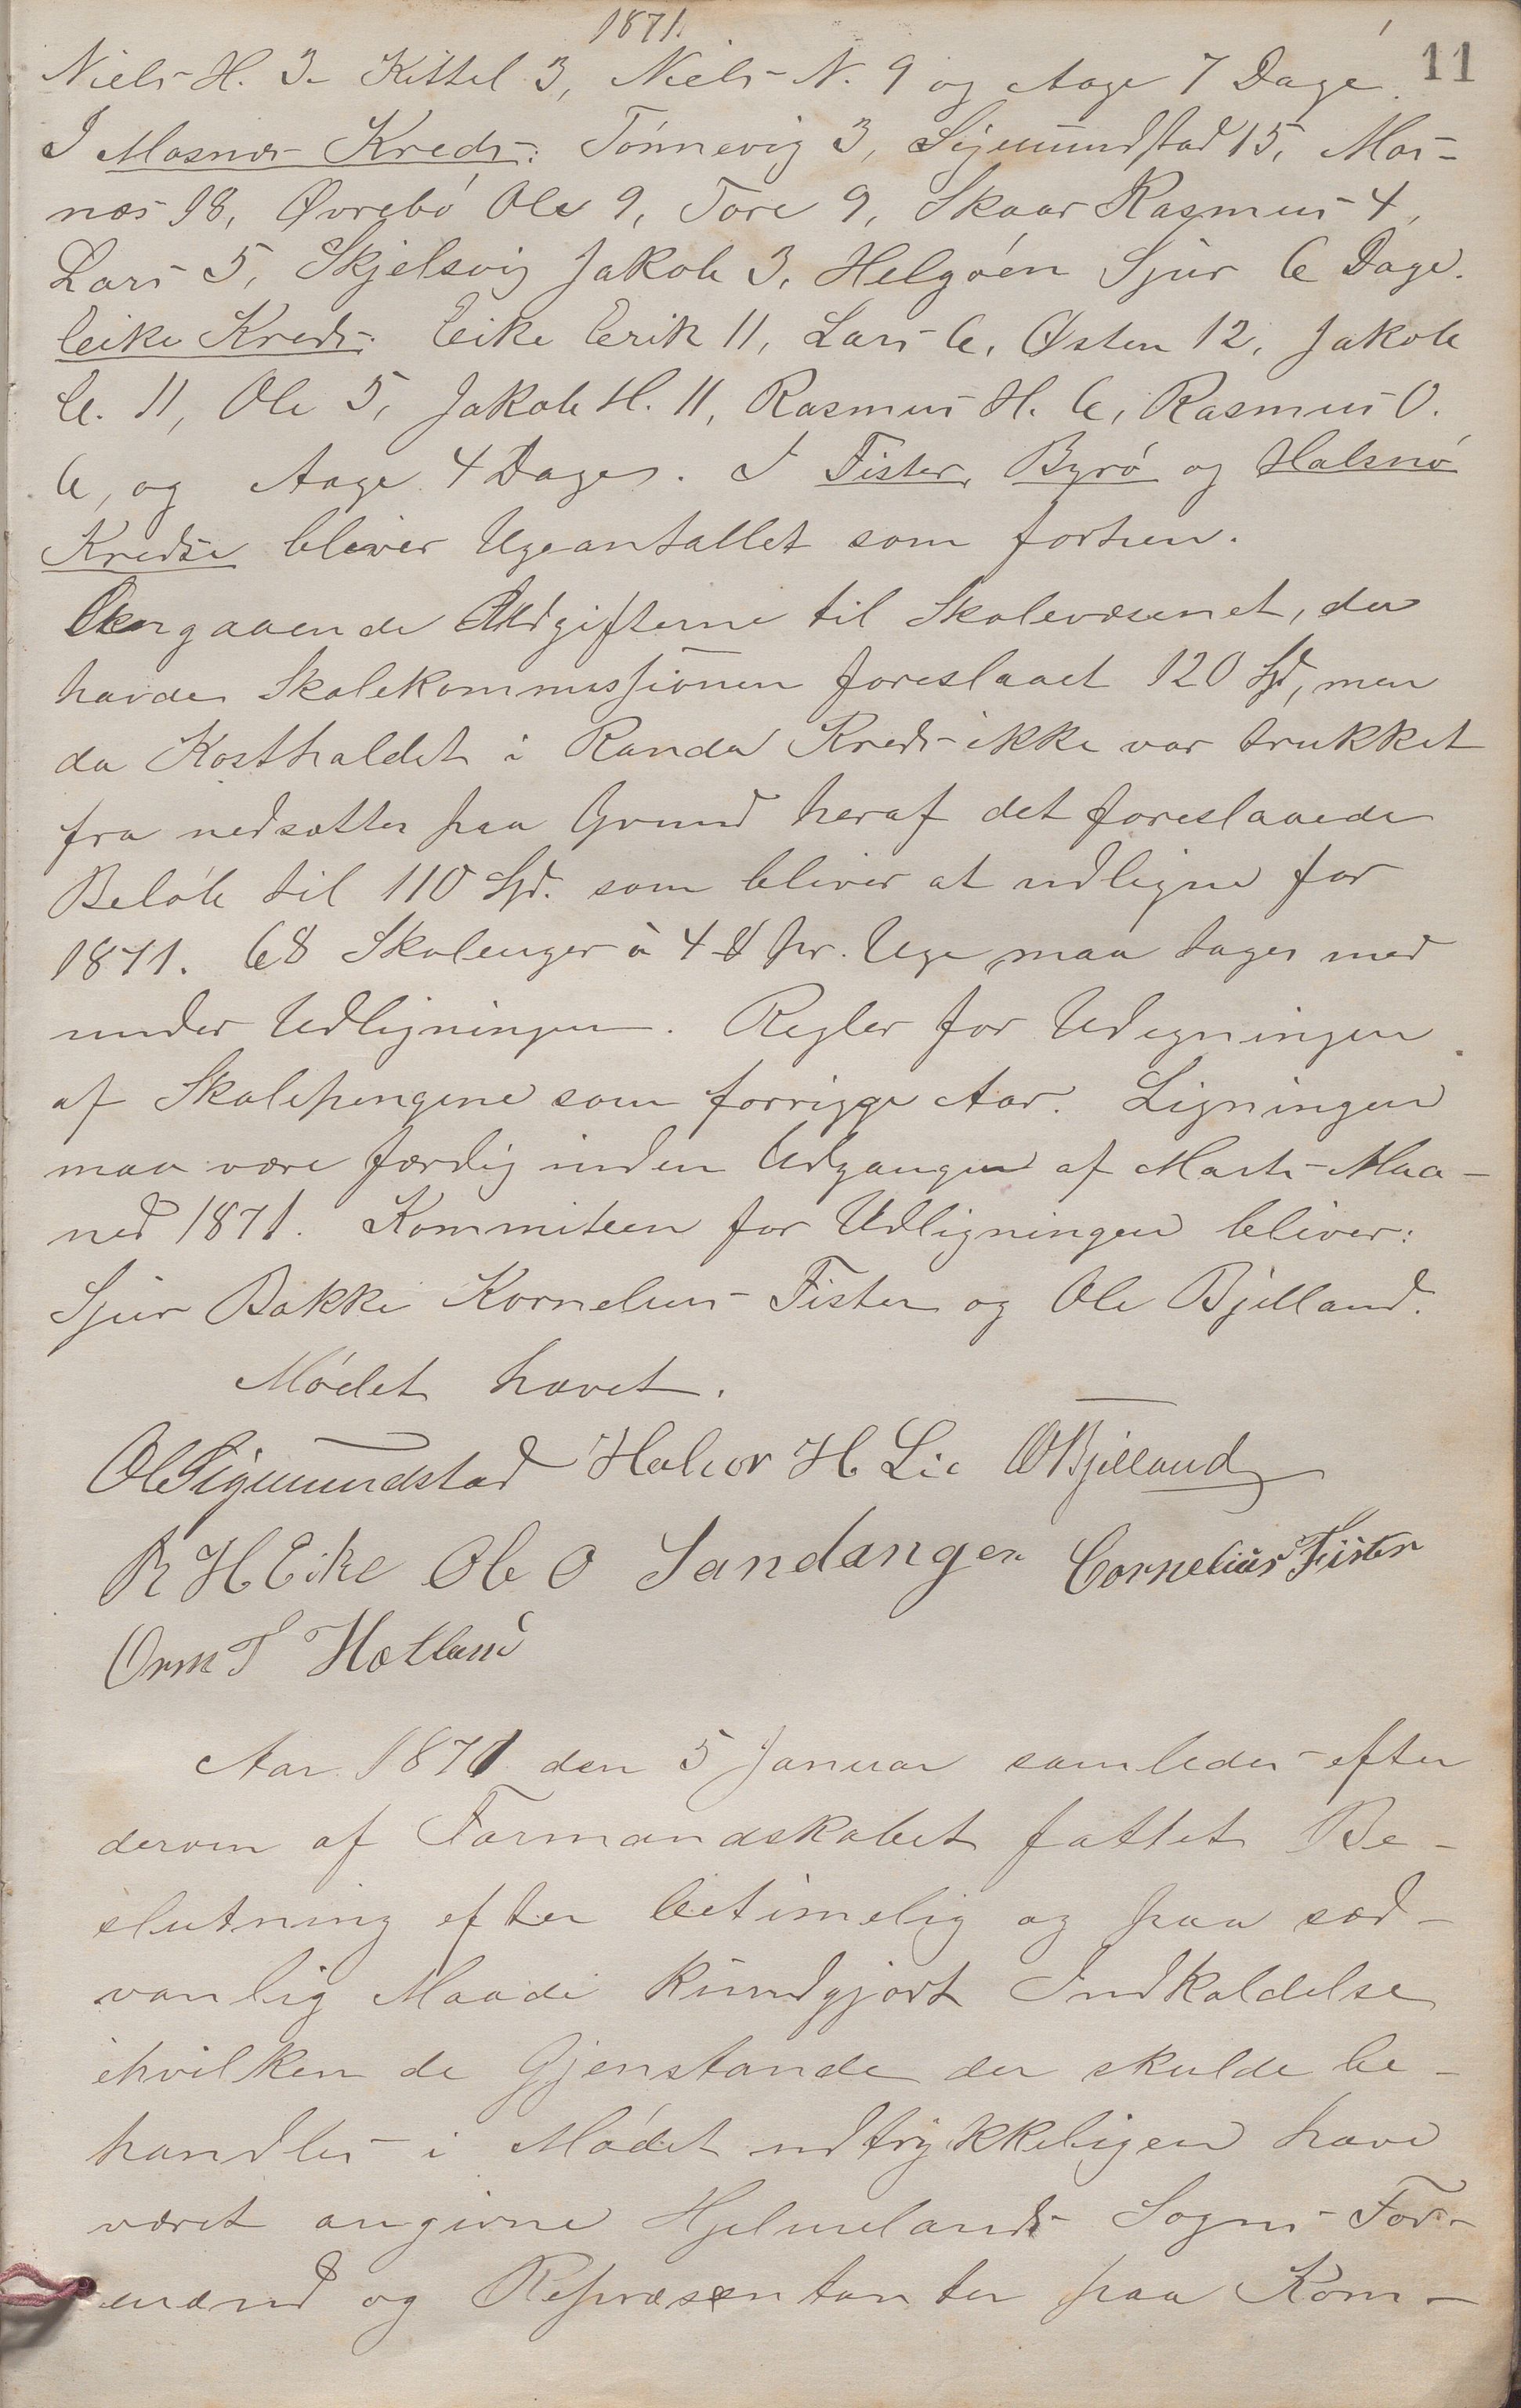 1871.
11
Niels H. 3. Kittel 3, Niels N. 9 og Aage 7 Dage.
I Mosnæs Kreds: Tönnevig 3, Sigmundstad 15, Mos-
næs 18, Øvrebö Ole 9, Tore 9, Skaar Rasmus 4,
Lars 5, Skjelsvig Jakob 3, Helgöen Sjur 6 Dage.
Eike Kreds. Eike Eerik 11, Lars 6, Østen 12, Jakob
E. 11, Ole 5, Jakob H. 11, Rasmus H. 6, Rasmus O.
6, og Aage 4 Dage. I Fister, Byrö og Halsnö
Kredse bliver Ugeantallet som forhen.
Angaaende Udgifterne til Skolevæsenet, da
havde Skolekommissionen foreslaaet 120 Spd, men
da Kostholdet i Randa Kreds ikke var trukket
fra nedsættes paa Grund heraf det foreslaaede
Belöb til 110 Spd. som bliver at udligne for
1871. 68 Skoleuger à 4 ℔ pr. Uge maa tages med
under Udligningen. Regler for Udegningen
af Skolepengene som forrigge Aar. Ligningen
maa være færdig inden Udgangen af Marts-Maa-
ned 1871. Kommiteen for Udligningen bliver:
Sjur Bakke Kornelius Fister og Ole Bjelland.
Mödet hævet.
Ol Sigmundstad Halvor H. Lie O Bjelland
R H Eike Ole O Sandanger Cornelius Fister
Orm T Hætland
Aar 1871 den 5 Januar samledes efter
derom af Formandskabet fattet Be-
slutning efter betimelig og paa sæd-
vanlig Maade kundgjort Indkaldelse
ihvilken de Gjenstande der skulde be-
handles i Mödet udtrykkeligen have
været angivne Hjelmelands Sogns For-
mænd og Repræsentanter paa Kom-